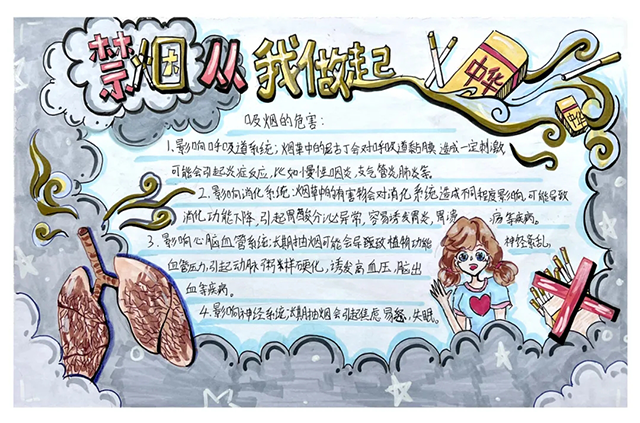 禁烟从我做起
中华
中华
吸烟的危害:
1.影响呼吸道系统:烟草中的尼古丁会对呼吸道黏膜造成一定刺激
可能会引起炎症反应,比如慢性咽炎,支气管炎肺炎等.
2.影响消化系统:烟草中的有害物会对消化系统造成不同程度影响,可能导致
消化功能下降,引起胃酸分泌异常,容易诱发胃炎,胃溃疡等疾病。
3.影响心脑血管系统:长期抽烟可能会导致植物功能神经紊乱,
血管压力,引起动脉粥样硬化,诱发高血压,脑出
血等疾病。
4.影响神经系统:长期抽烟会引起焦虑易怒,失眠。